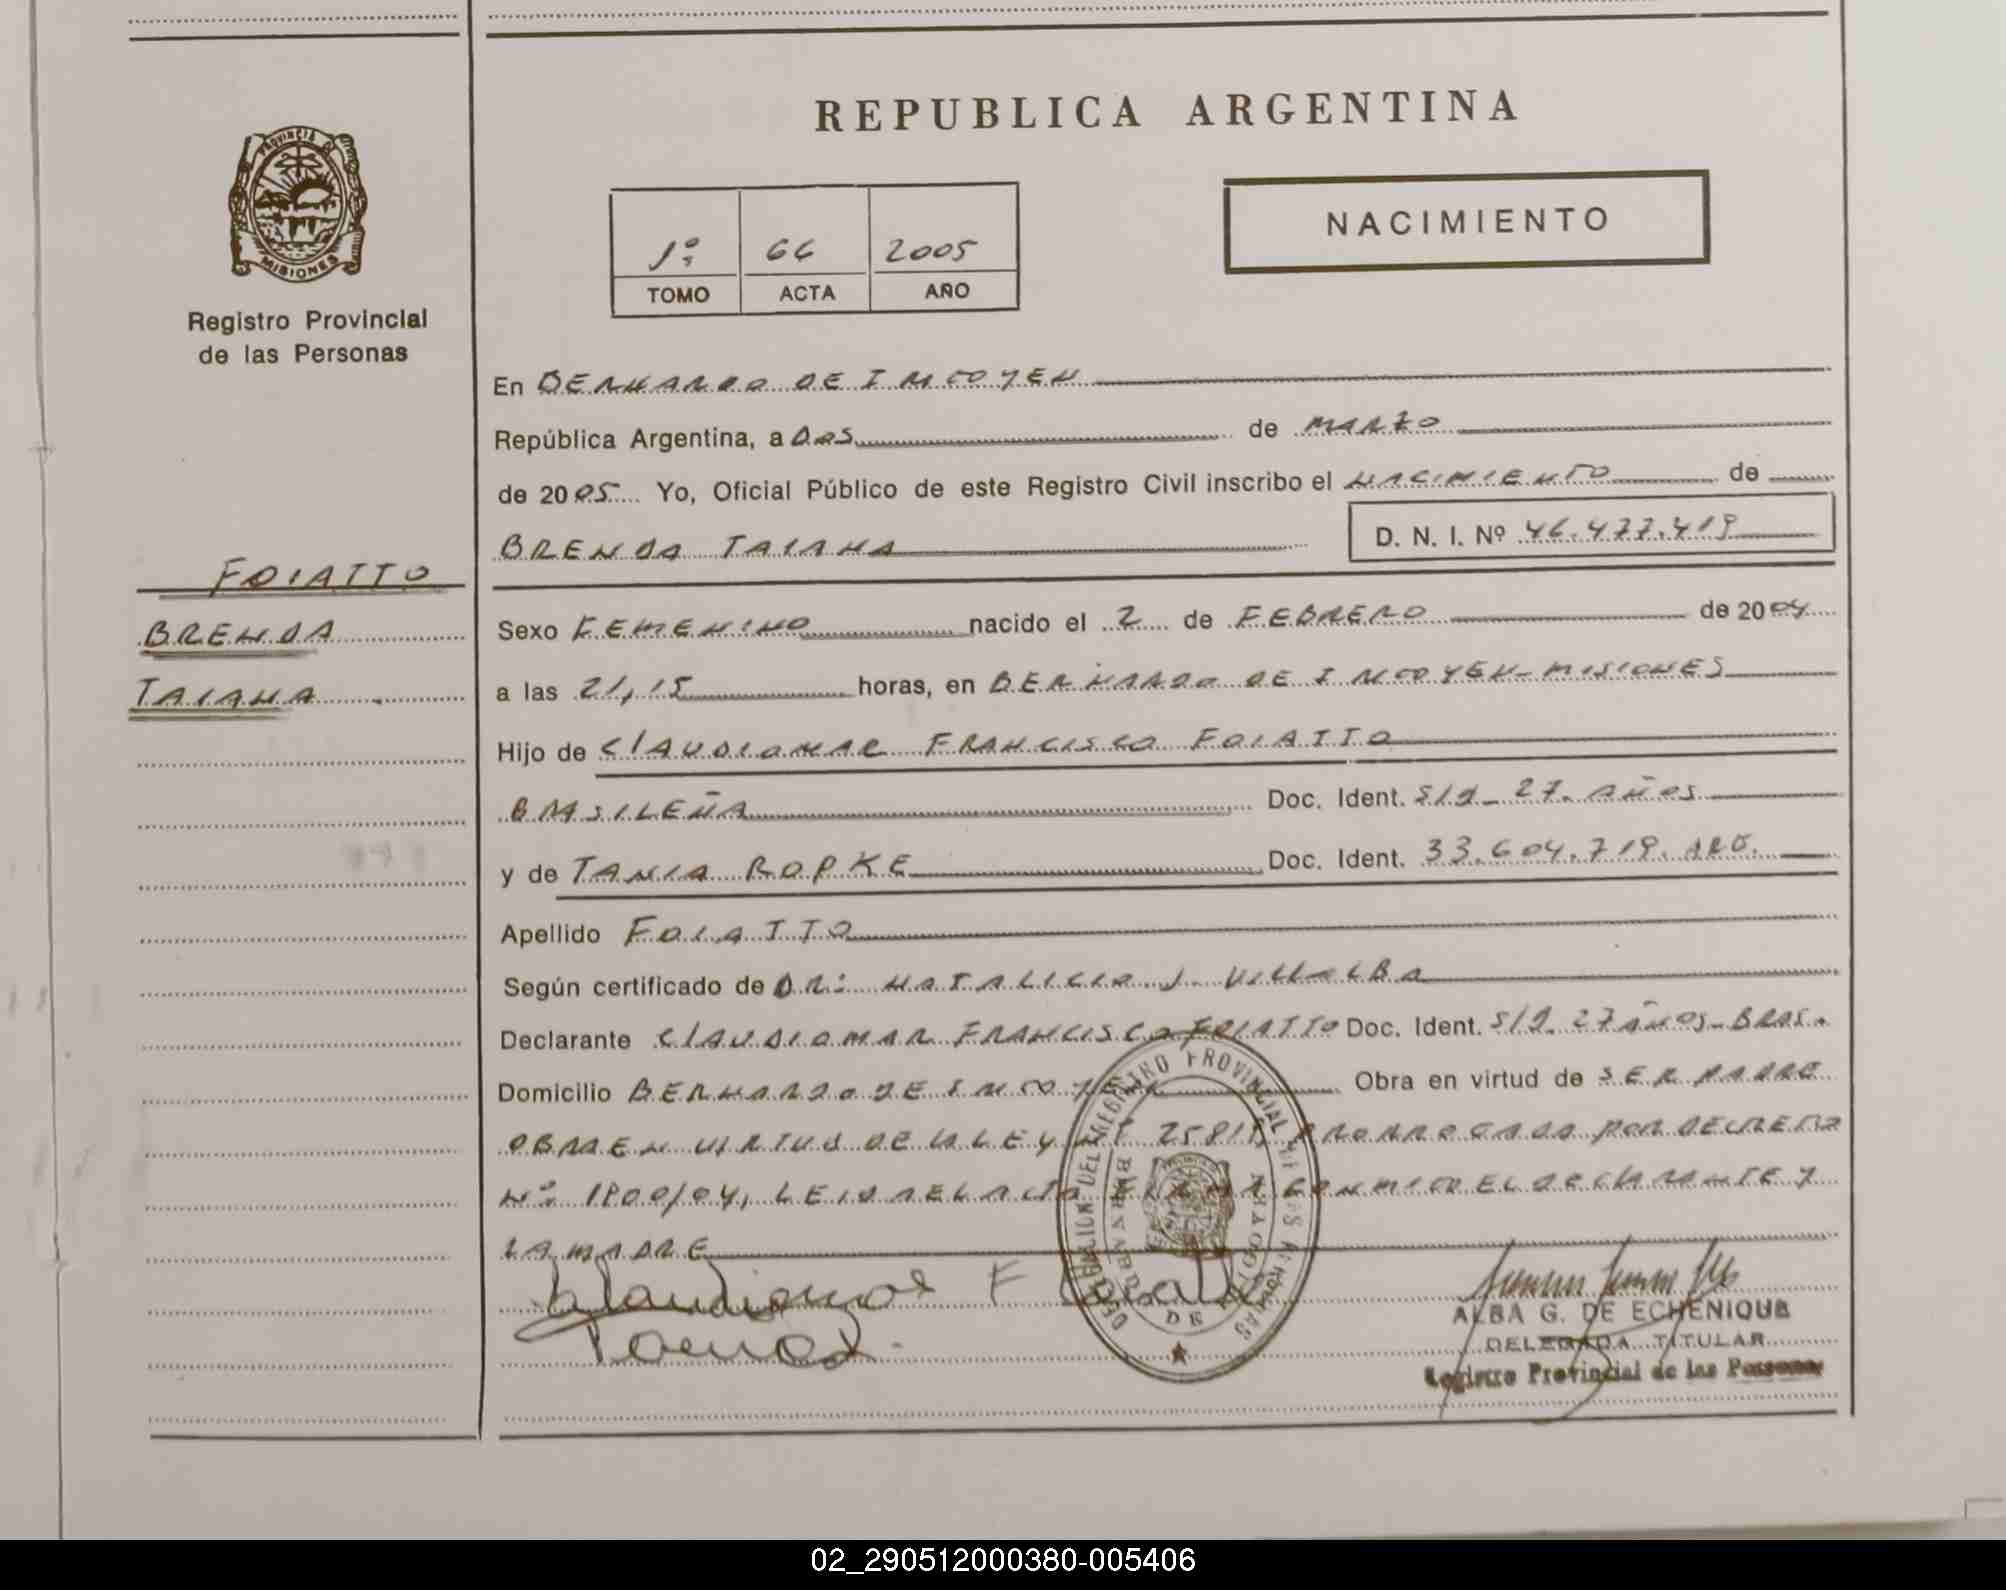 REPUBLICA ARGENTINA
PROVINCIA DE
MISIONES
Registro Provincial
de las Personas
1º 66 2005
TOMO ACTA AÑO
NACIMIENTO
En BERNARDO DE IRIGOYEN
República Argentina, a DOS de MARZO
de 2005 Yo, Oficial Público de este Registro Civil inscribo el NACIMIENTO de
BRENDA TAIANA D. N. I. Nº 46.477.419
FOIATTO
BRENDA
TAIANA
Sexo FEMENINO nacido el 2 de FEBRERO de 2004
a las 21,15 horas, en BERNARDO DE IRIGOYEN-MISIONES
Hijo de CLAUDIOMAR FRANCISCO FOIATTO
BRASILEÑA Doc. Ident. S/D_ 27. AÑOS
y de TANIA ROPKE Doc. Ident. 33.604.719. ARG.
Apellido FOIATTO
Según certificado de DR: NATALICIO J. VILLALBA
Declarante CLAUDIOMAR FRANCISCO FOIATTO Doc. Ident. S/D. 27 AÑOS_BRAS.
Domicilio BERNARDO DE IRIGOYEN Obra en virtud de SER PADRE
OBRA EN VIRTUD DE LA LEY Nº 25819 PRORROGADA POR DECRETO
Nº 1800/04, LEIDA EL ACTA FIRMA CONMIGO EL DECLARANTE Y
LA MADRE
DELEGACION DEL REGISTRO PROVINCIAL DE LAS PERSONAS
BERNARDO DE IRIGOYEN
ALBA G. DE ECHENIQUE
DELEGADA TITULAR
Registro Provincial de las Personas
02_290512000380-005406